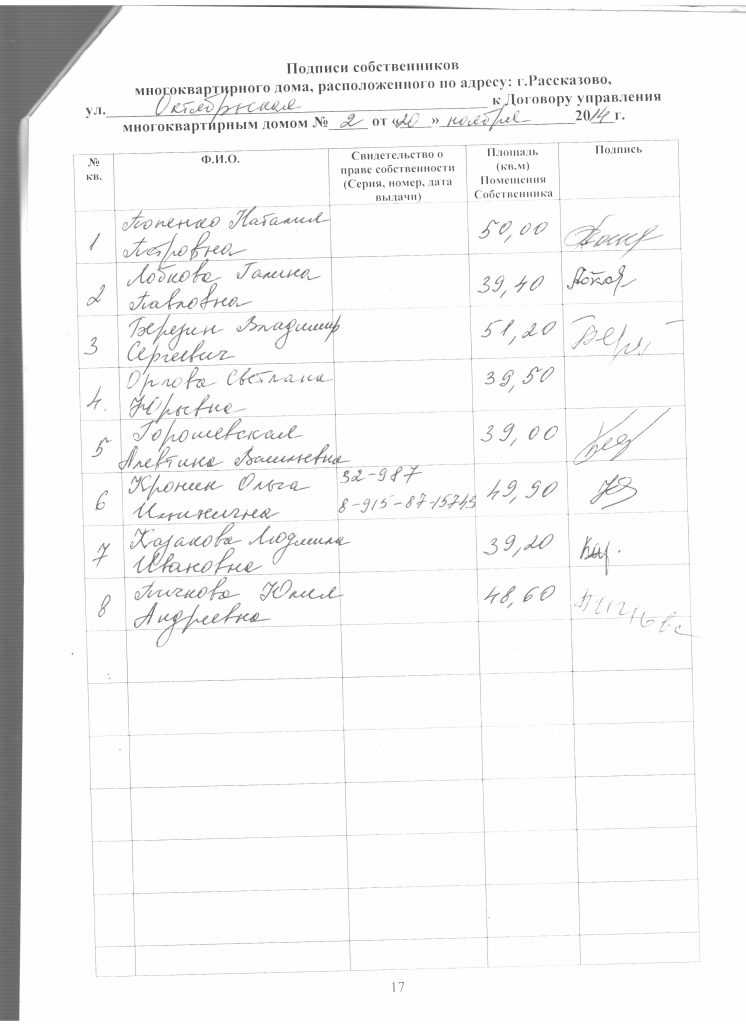 Подписи собственников
многоквартирного дома, расположенного по адресу: г.Рассказово,
ул. Октябрьская к Договору управления
многоквартирным домом № 2 от «20» ноября 2014 г.
№ кв. Ф.И.О. Свидетельство о праве собственности (Серия, номер, дата выдачи) Площадь (кв.м) Помещения Собственника Подпись
1 Попенко Наталия Петровна 50,00
2 Лобкова Галина Павловна 39,40
3 Березин Владимир Сергеевич 51,20
4. Орлова Светлана Юрьевна 39,50
5 Горошевская Алевтина Васильевна 39,00
6 Кроник Ольга 32-987 49,90
8-915-87-15743
7 Казакова Людмила Ивановна 39,20
8 Пичкова Юлия Андреевна 48,60
17